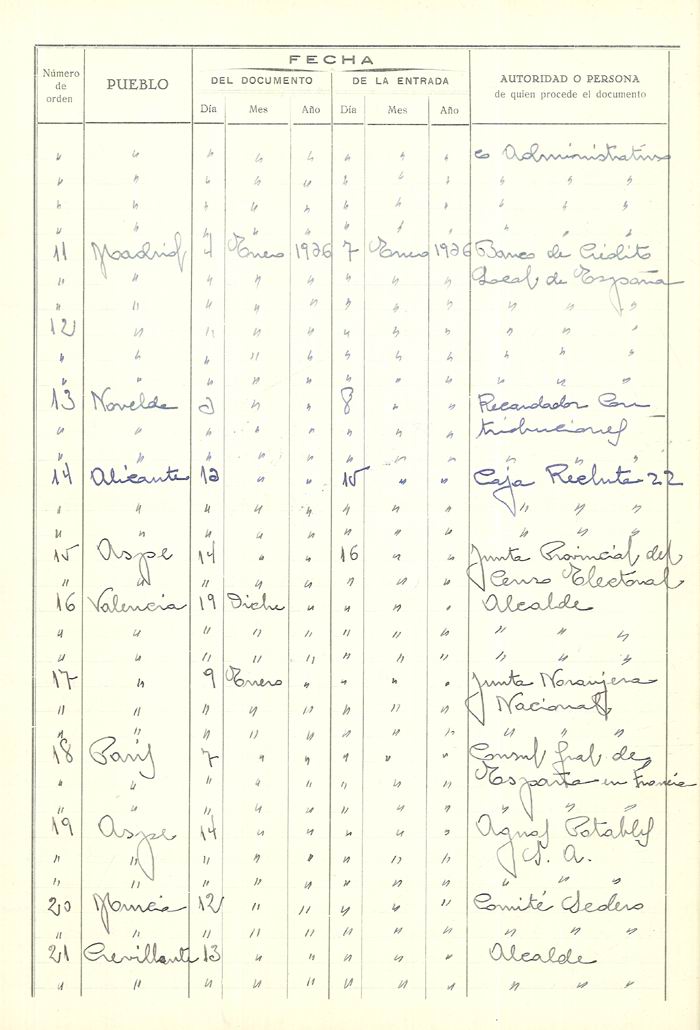 FECHA
Número de orden PUEBLO DEL DOCUMENTO DE LA ENTRADA AUTORIDAD O PERSONA de quien procede el documento
Día Mes Año Día Mes Año
" " " " " " " " co Administrativo
" " " " " " " " " " "
" " " " " " " " " " "
" " " " " " " " " " "
11 Madrid 4 Enero 1936 7 Enero 1936 Banco de Crédito
" " " " " " " " Local de España
" " " " " " " " " " "
12 " " " " " " " " " "
" " " " " " " " " " "
" " " " " " " " " " "
13 Novelda " " 8 " " Recaudador Con
" " " " " " " " tribuciones
" " " " " " " " " " "
14 Alicante 13 " " 15 " " Caja Recluta 22
" " " " " " " " " " "
" " " " " " " " " " "
15 Aspe 14 " " 16 " " Junta Provincial del
" " " " " " " " Censo Electoral
16 Valencia 19 Dicbe " " " " Alcalde
" " " " " " " " " " "
" " " " " " " " " " "
17 " 9 Enero " " " " Junta Naranjera
" " " " " " " " Nacional
" " " " " " " " " " "
18 París 7 " " " " " Consul gral de
" " " " " " " " España en Francia
" " " " " " " " " " "
19 Aspe 14 " " " " " Aguas Potables
" " " " " " " " S. A.
" " " " " " " " " " "
20 Murcia 12 " " " " " Comité Sedero
" " " " " " " " " " "
21 Crevillente 13 " " " " " Alcalde
" " " " " " " " " " "